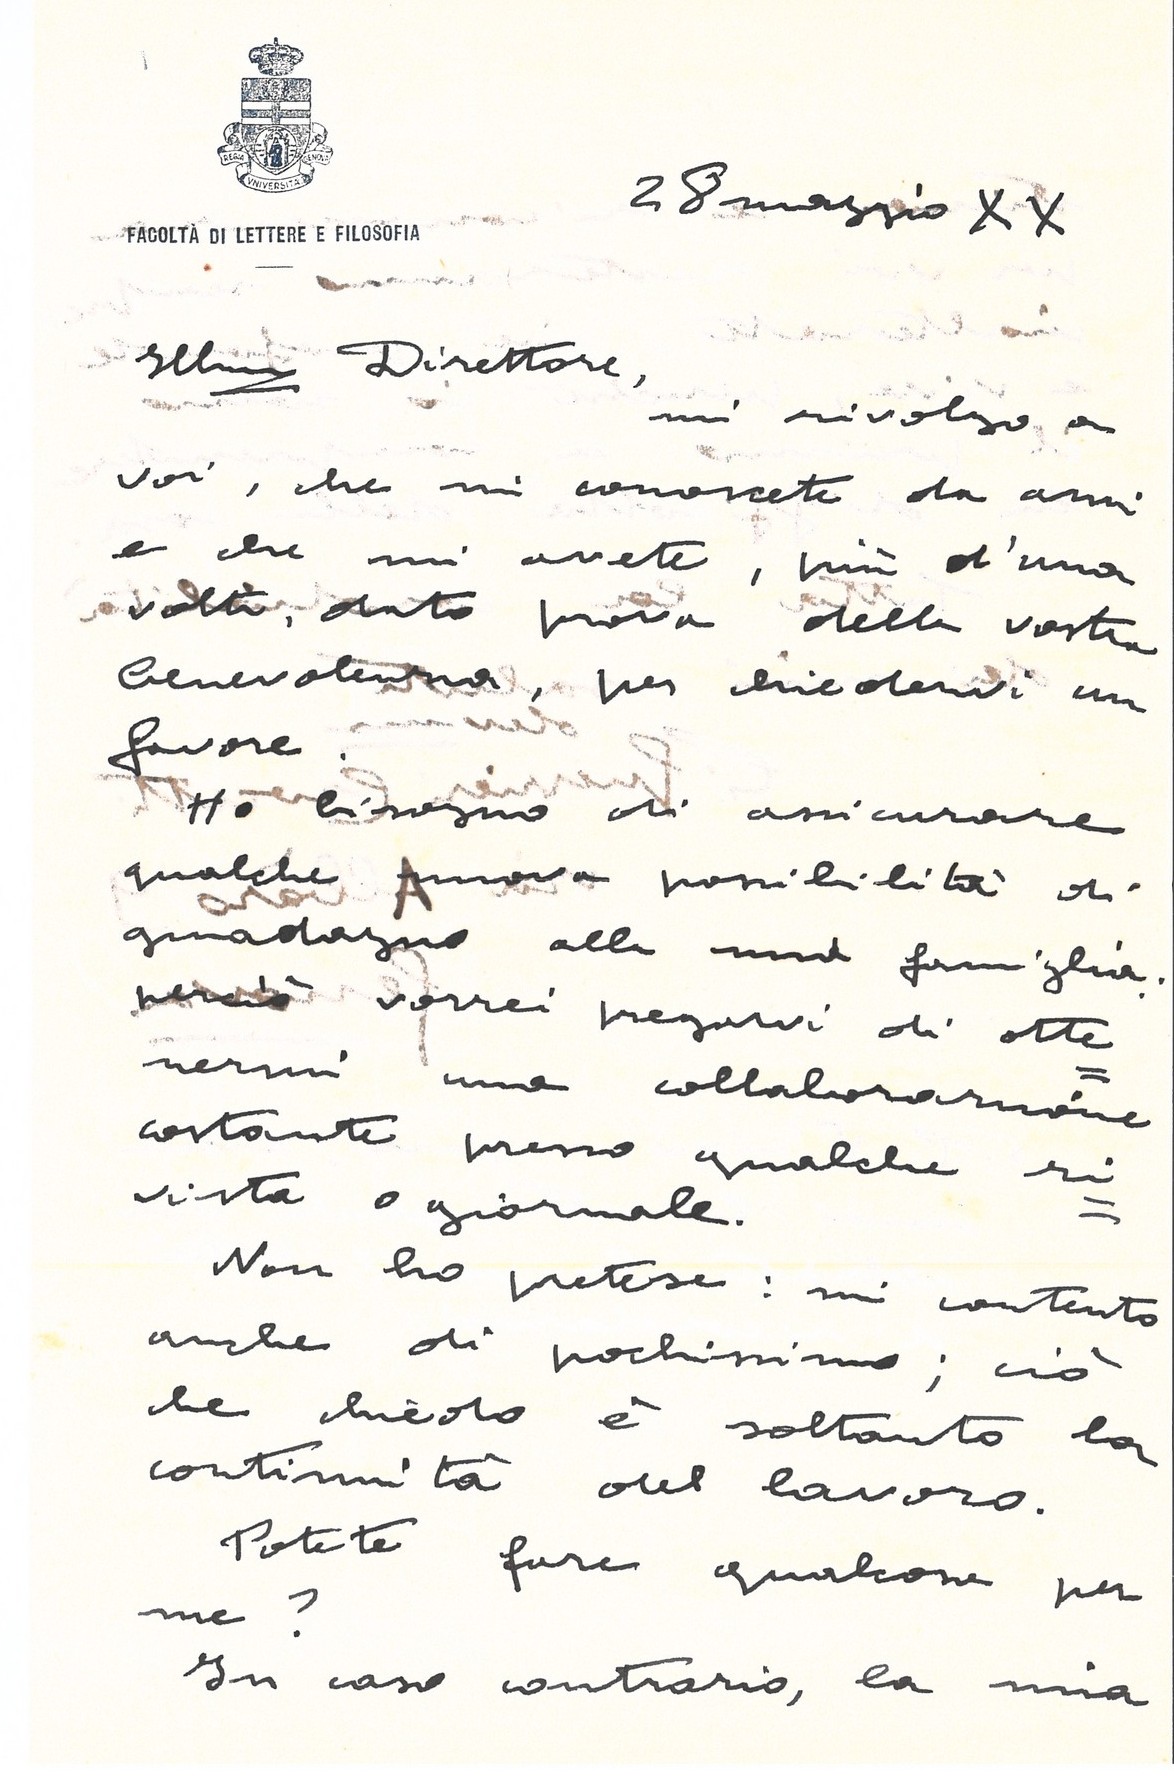 REGIA
GENOVA
VNIVERSITÀ
FACOLTÀ DI LETTERE E FILOSOFIA
28 maggio XX
Illmo Direttore,
mi rivolgo a
voi, che mi conoscete da anni
e che mi avete, più d'una
volta, dato prova della vostra
benevolenza, per chiedervi un
favore.
Ho bisogno di assicurare
qualche nuova possibilità di
guadagno alla mia famiglia.
perciò vorrei pregarvi di otte=
nermi una collaborazione
costante presso qualche ri=
vista o giornale.
Non ho pretese: mi contento
anche di pochissimo; ciò
che chiedo è soltanto la
continuità del lavoro.
Potete fare qualcosa per
me?
In caso contrario, la mia